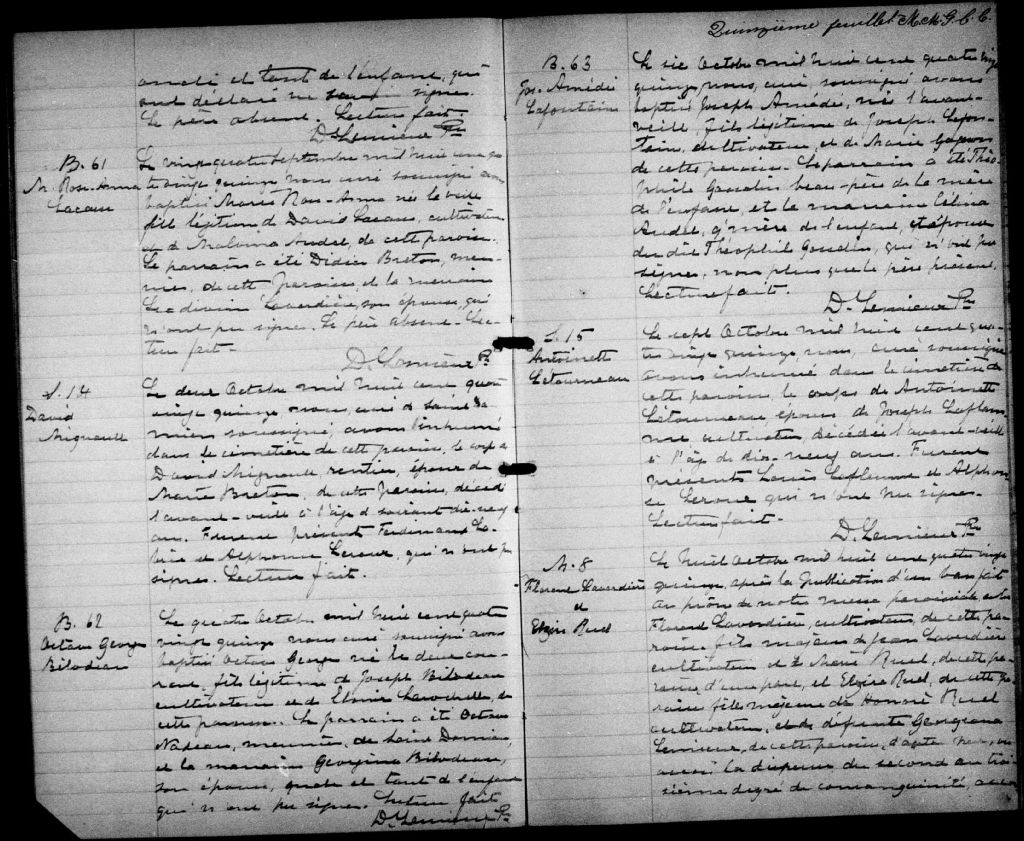 oncle et tante de l'enfant, qui
ont déclaré ne savoir signer.
Le père absent. Lecture fait.
D. Lemieux Ptre
B. 61
M. Rose-Anna
Lacasse
Le vingt quatre Septembre mil huit cent qua
tre vingt quinze nous curé soussigné avons
baptisé Marie Rose-Anna née la veille
fille légitime de David Lacasse, cultivateur
et de Audet, de cette paroisse.
Le parrain a été Didier Breton, meu-
nier, de cette paroisse, et la marraine
Laverdière, son épouse, qui
n'ont pu signer. Le père absent. Lec-
ture fait.
D. Lemieux Ptre
S. 14
David
Mignault
Le deux Octobre mil huit cent quatre
vingt quinze nous, curé de Saint Da-
mien soussigné, avons inhumé
dans le cimetière de cette paroisse, le corps de
David Mignault, rentier, époux de
Marie Breton, de cette paroisse, décédé
l'avant-veille à l'âge de soixante dix-neuf
ans. Furent présent Ferdinand La-
et Alphonse Leroux, qui n'ont pu
signer. Lecture fait.
B. 62
Octave George
Bilodeau
Le quatre Octobre mil huit cent quatre
vingt quinze nous curé soussigné avons
baptisé Octave George né le deux cou-
rant, fils légitime de Joseph Bilodeau
cultivateur et de Larochelle, de
cette paroisse. Le parrain a été Octave
Nadeau, meunier, de Saint Damien,
et la marraine Georgina Bilodeau,
son épouse, oncle et tante de l'enfant
qui n'ont pu signer. Lecture fait
D. Lemieux Ptre
Quinzième feuillet M.M.G.C.C.
B. 63
Jos. Amédé
Lafontaine
Le six Octobre mil huit cent quatre vingt
quinze, nous, curé, soussigné avons
baptisé Joseph Amédé, né l'avant
veille, fils légitime de Joseph Lafon-
taine, cultivateur, et de Marie
de cette paroisse. Le parrain a été Théo-
phile Gosselin beau-père de la mère
de l'enfant, et la marraine Célina
Audet, gd'mère de l'enfant, et épouse
du dit Théophile Gosselin, qui n'ont pu
signer, non plus que le père présent.
Lecture fait.
D. Lemieux Ptre
S. 15
Antoinette
Létourneau
Le sept Octobre mil huit cent qua-
tre vingt quinze, nous, curé soussigné
avons inhumé dans le cimetière de
cette paroisse, le corps de Antoinette
Létourneau, épouse de Joseph Laflam-
me cultivateur, décédée l'avant-veille
à l'âge de dix-neuf ans. Furent
présents Louis Laflamme et Alphon-
se Leroux qui n'ont pu signer.
Lecture fait.
D. Lemieux Ptre
M. 8
Florent Laverdière
et
Elzire Ruel
Le huit Octobre mil huit cent quatre vingt
quinze, après la publication d'un ban fait
au prône de notre messe paroissiale, entre
Florent Laverdière, cultivateur, de cette pa-
roisse, fils majeur de Jean Laverdière
cultivateur et de Marie Ruel, de cette pa-
roisse, d'une part, et Elzire Ruel, de cette pa-
roisse fille majeure de Honoré Ruel
cultivateur, et de défunte Georgeana
Lemieux, de cette paroisse, d'autre part, vu
aussi la dispense du second au troi-
sième degré de consanguinité,